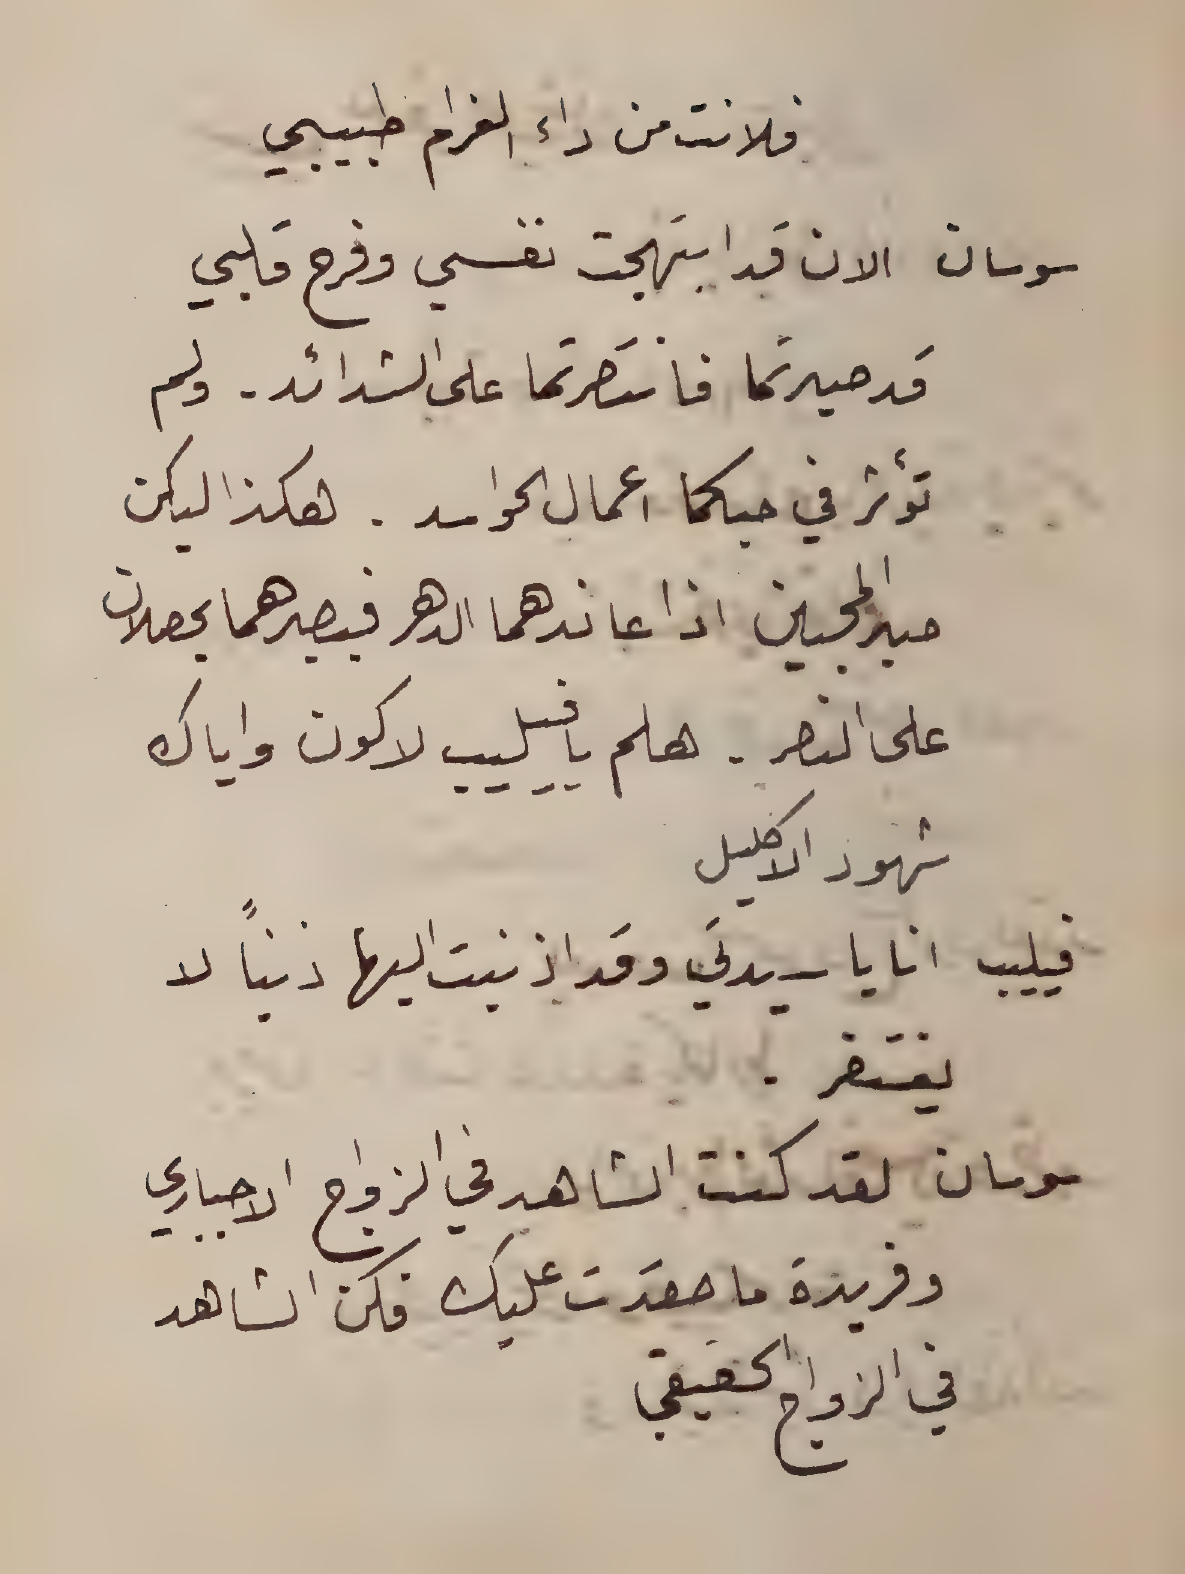 فلانت من داء الغرام طبيبي
سوسان الان قد ابتهجت نفسي وفرح قلبي
قد صبرتما فانتصرتما على الشدائد - ولم
تؤثر في حبكما اعمال الحواسد . هكذا ليكن
صبر المحبين اذا عاندهما الدهر فبصبرهما يحصلان
على النصر . هلم يا فيليب لاكون واياك
شهود الاكليل
فيليب انا يا سيدتي وقد اذنبت اليها ذنباً لا
يغتفر .
سوسان لقد كنت الشاهد في الزواج الاجباري
وفريدة ما حقدت عليك فكن الشاهد
في الزواج الحقيقي